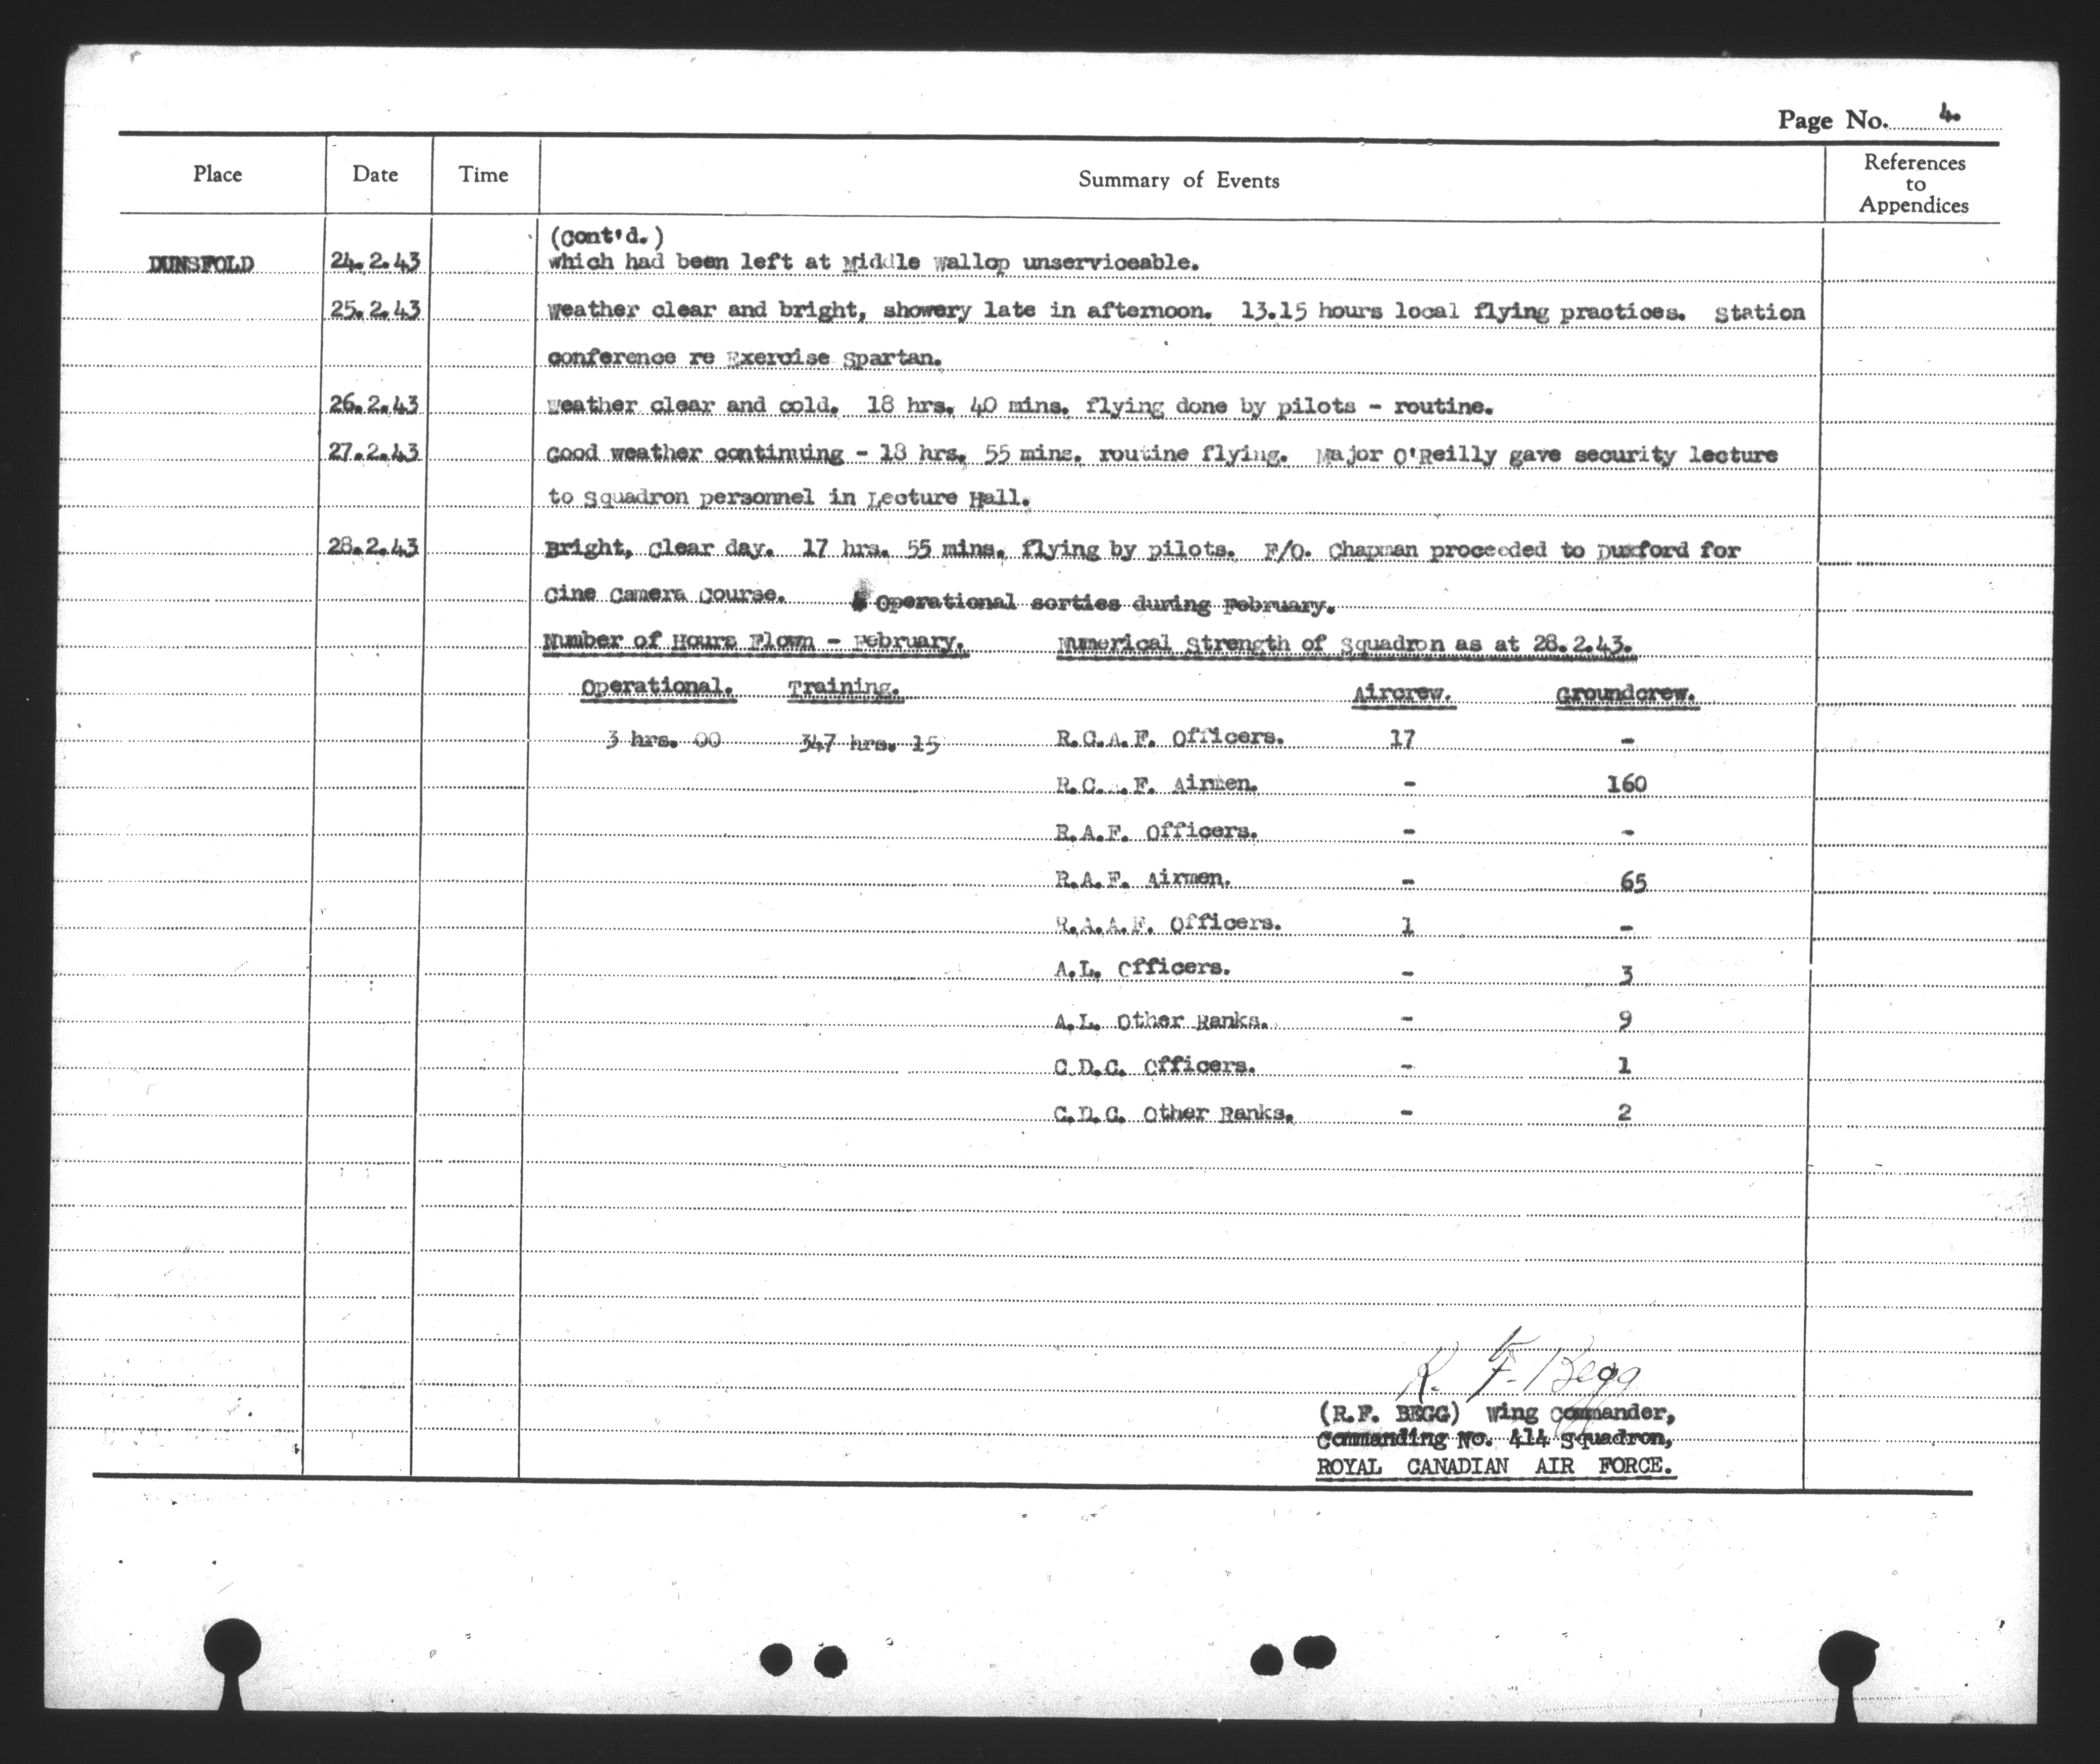 Page No. 4.
Place Date Time Summary of Events References to Appendices
(Cont'd.)
DUNSFOLD 24.2.43 which had been left at Middle Wallop unserviceable.
25.2.43 Weather clear and bright, showery late in afternoon. 13.15 hours local flying practices. Station
conference re Exercise Spartan.
26.2.43 Weather clear and cold. 18 hrs. 40 mins. flying done by pilots - routine.
27.2.43 Good weather continuing - 18 hrs. 55 mins. routine flying. Major O'Reilly gave security lecture
to Squadron personnel in Lecture Hall.
28.2.43 Bright, Clear day. 17 hrs. 55 mins. flying by pilots. F/O. Chapman proceeded to Duxford for
Cine Camera Course. Operational sorties during February.
Number of Hours Flown - February. Numerical Strength of Squadron as at 28.2.43.
Operational. Training. Aircrew. Groundcrew.
3 hrs. 00 347 hrs. 15 R.C.A.F. Officers. 17 -
R.C. .F. Airmen. - 160
R.A.F. Officers. - -
R.A.F. Airmen. - 65
R.A.A.F. Officers. 1 -
A.L. Officers. - 3
A.L. Other Ranks. - 9
C.D.C. Officers. - 1
C.D.C. Other Ranks. - 2
R. F. Begg
(R.F. BEGG) Wing Commander,
Commanding No. 414 Squadron,
ROYAL CANADIAN AIR FORCE.